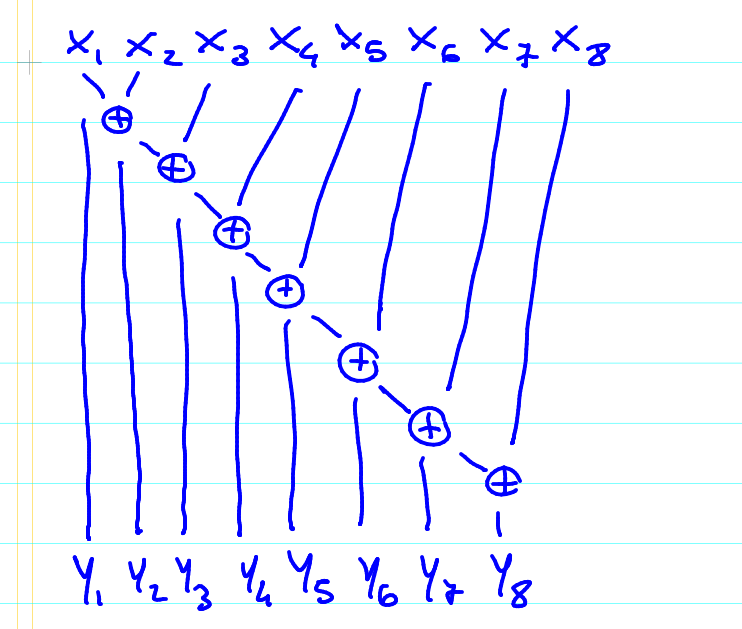 X₁ X₂ X₃ X₄ X₅ X₆ X₇ X₈
⊕
⊕
⊕
⊕
⊕
⊕
⊕
Y₁ Y₂ Y₃ Y₄ Y₅ Y₆ Y₇ Y₈